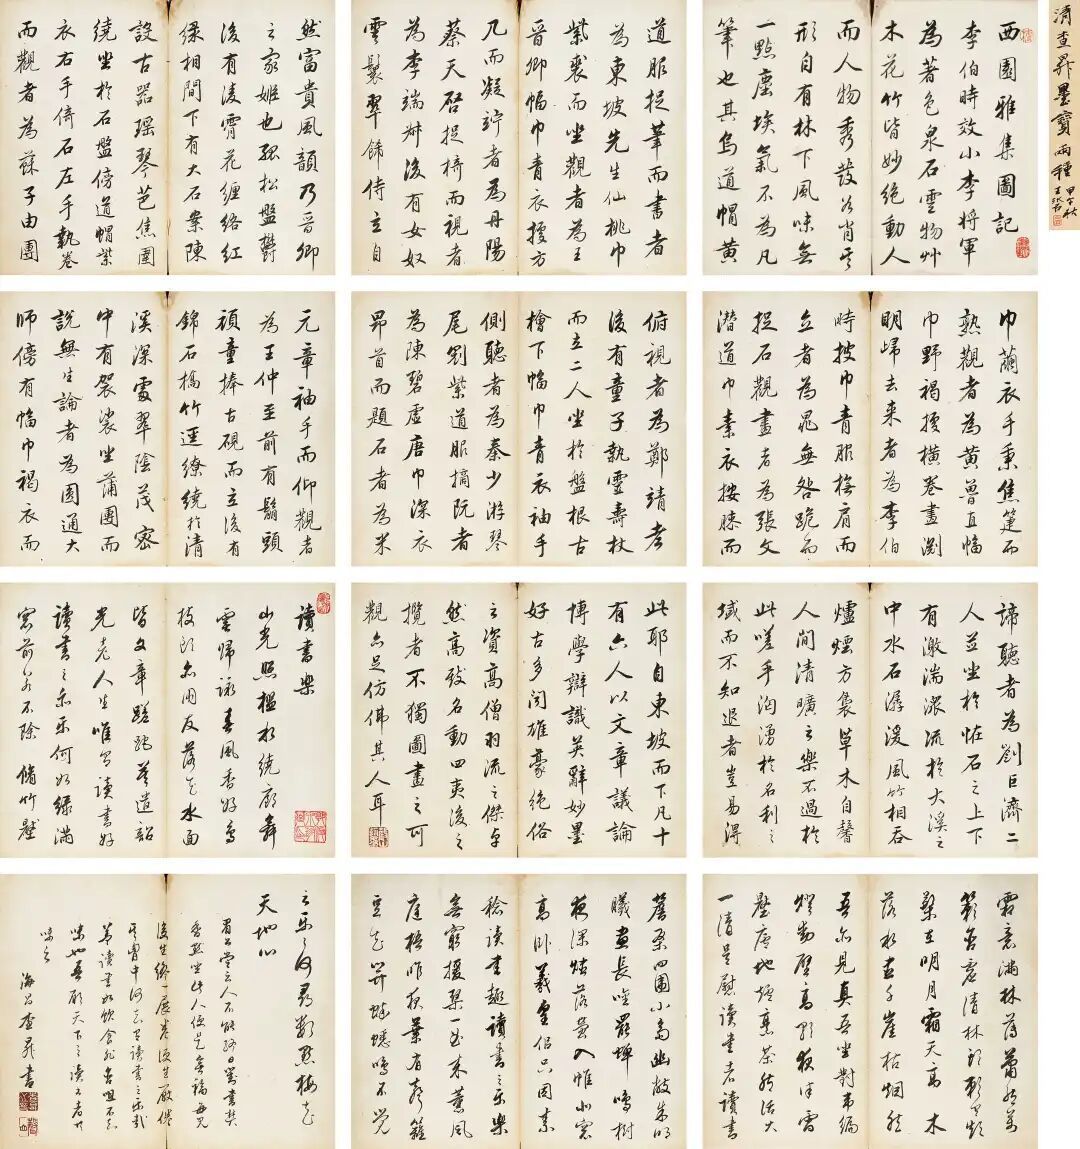 清查昇墨寶兩種
甲午秋
西園雅集圖記
李伯時效小李將軍
為著色泉石雲物艸
木花竹皆妙絕動人
而人物秀發各肖其
形自有林下風味無
一點塵埃氣不為凡
筆也其烏道帽黃
道服捉筆而書者
為東坡先生仙桃巾
紫裘而坐觀者為王
晉卿幅巾青衣據方
几而凝竚者為丹陽
蔡天啓捉椅而視者
為李端叔後有女奴
雲鬟翠飾侍立自
然富貴風韻乃晉卿
之家姬也孤松盤鬱
後有凌霄花纏絡紅
綠相間下有大石案陳
設古器瑤琴芭焦圍
繞坐於石盤傍道帽紫
衣右手倚石左手執卷
而觀者為蘇子由團
巾繭衣手秉焦箑而
熟觀者為黃魯直幅
巾野褐據橫卷畫淵
明歸去來者為李伯
時披巾青服撫肩而
立者為晁無咎跪而
捉石觀畫者為張文
潛道巾素衣按膝而
俯視者為鄭靖老
後有童子執靈壽杖
而立二人坐於盤根古
檜下幅巾青衣袖手
側聽者為秦少游琴
尾劉紫道服摘阮者
為陳碧虛唐巾深衣
昂首而題石者為米
元章袖手而仰觀者
為王仲至前有鬅頭
頑童捧古硯而立後有
錦石橋竹逕繚繞於清
溪深處翠陰茂密
中有袈裟坐蒲團而
說無生論者為圓通大
師傍有幅巾褐衣而
諦聽者為劉巨濟二
人並坐於怪石之上下
有激湍淙流於大溪之
中水石潺湲風竹相吞
爐煙方裊草木自馨
人間清曠之樂不過於
此嗟乎洶湧於名利之
域而不知退者豈易得
此耶自東坡而下凡十
有六人以文章議論
博學辯識英辭妙墨
好古多聞雄豪絕俗
之資高僧羽流之傑卓
然高致名動四夷後之
攬者不獨圖畫之可
觀亦足仿佛其人耳
讀書樂
山光照檻水繞廊舞
雩歸詠春風香好鳥
枝頭亦朋友落花水面
皆文章蹉跎莫遣韶
光老人生唯有讀書好
讀書之樂樂何如綠滿
窗前草不除 脩竹壓
簷桑四圍小齋幽敞朱明
曦晝長吟罷蟬鳴樹
夜深燼落螢入帷北窗
高卧羲皇侶只因素
稔讀書趣讀書之樂樂
無窮援琴一曲來薰風
庭梧昨夜葉有聲籬
豆花開蟋蟀鳴不覺
商意滿林薄蕭然萬
籟含虛清牀頭賴有短
檠在明月霜天高 木
落水盡千崖枯迥然
吾亦見真吾坐對韋編
燈動壁高歌夜半雪
壓廬地爐烹茶然活火
一清足慰讀書者讀書
之樂何處尋數點梅花
天地心
眉公嘗云人不能終日
香默坐此人便是無福再見
後生終一展卷便生厭倦
其胸中何知有讀書之樂哉
讀書如飲食然含咀不知
味也吾願天下之讀書者
味之
海昌查昇書